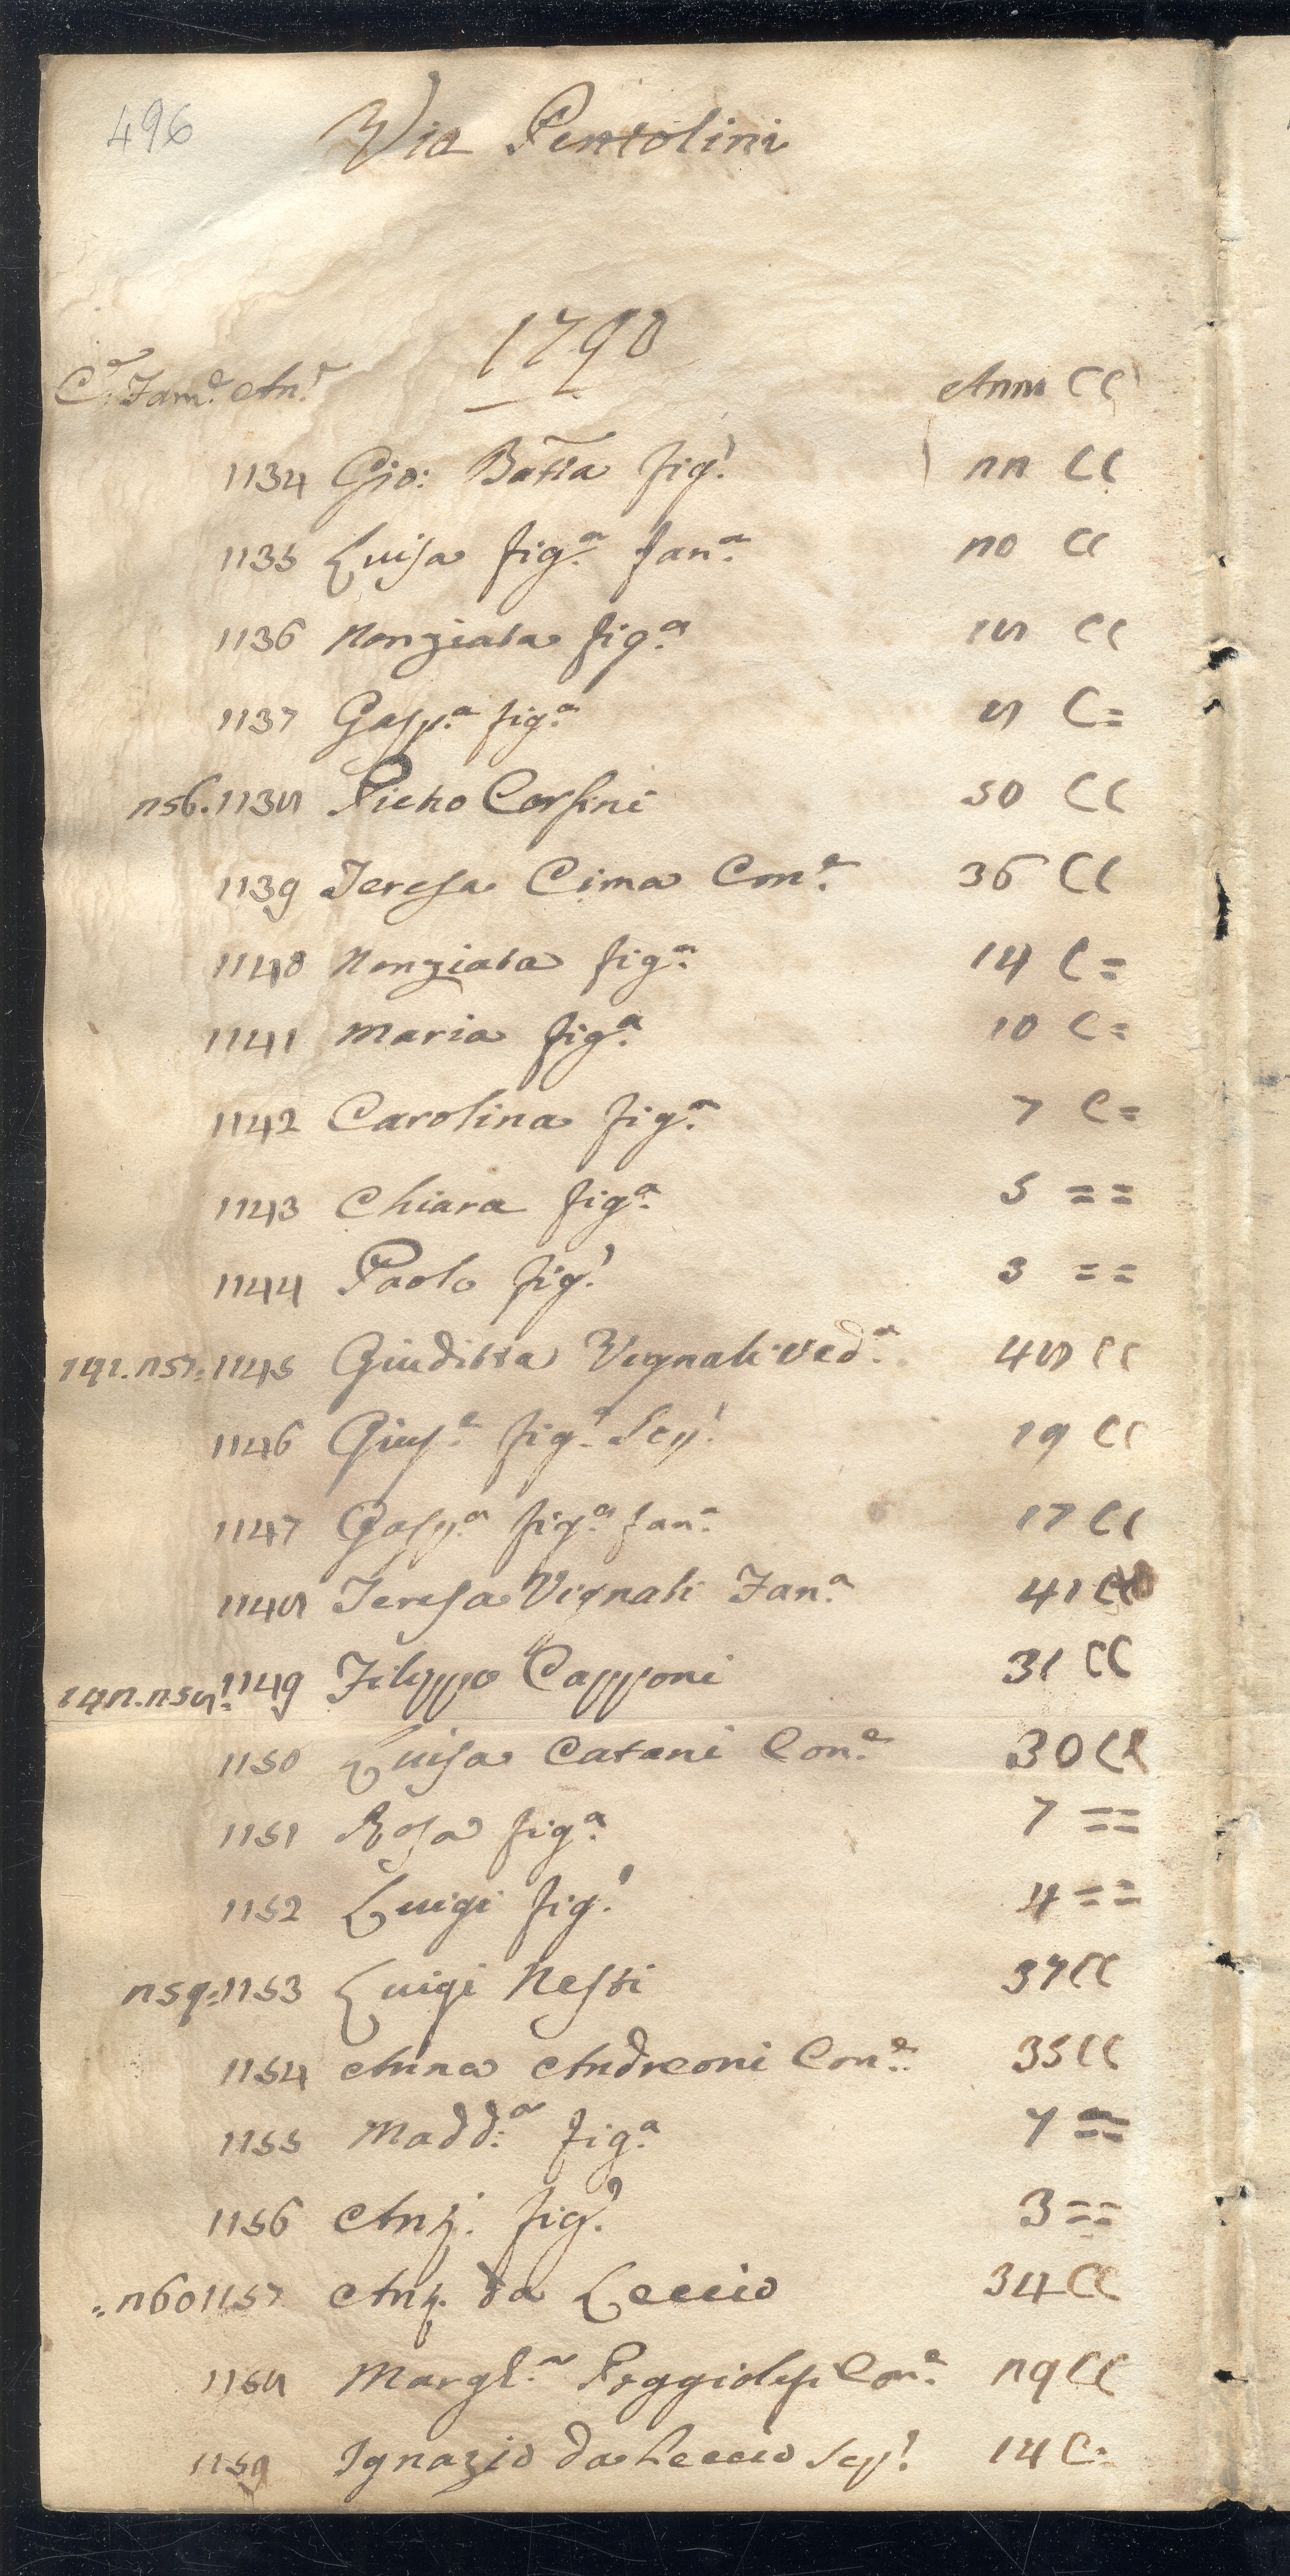 496
Via Pentolini
1790
C.e Fam.e An.e Anni CC
1134 Gio: Batta fig.l 22 CC
1135 Luisa fig.a fan.a 20 CC
1136 Nonziata fig.a 18 CC
1137 Gasp.a fig.a 8 C=
256. 1138 Pietro Corsini 50 CC
1139 Teresa Cima Con.e 36 CC
1140 Nonziata fig.a 14 C=
1141 Maria fig.a 10 C=
1142 Carolina fig.a 7 C=
1143 Chiara fig.a 5 ==
1144 Paolo fig.l 3 ==
191. 257. 1145 Giuditta Vignali ved.a 48 CC
1146 Gius.e fig.o Scp.l 19 CC
1147 Gasp.a fig.a fan.a 17 CC
1148 Teresa Vignali Fan.a 41 CC
192. 258. 1149 Filippo Capponi 31 CC
1150 Luisa Catani Con.e 30 CC
1151 Rosa fig.a 7 ==
1152 Luigi fig.l 4 ==
259. 1153 Luigi Nesti 37 CC
1154 Anna Andreoni Con.e 35 CC
1155 Madd:a fig.a 7 ==
1156 Ant. fig.l 3 ==
260 1157 Ant. da Leccio 34 CC
1158 Margh.a Poggiolesi Con.e 29 CC
1159 Ignazio da Leccio Scp.l 14 C=